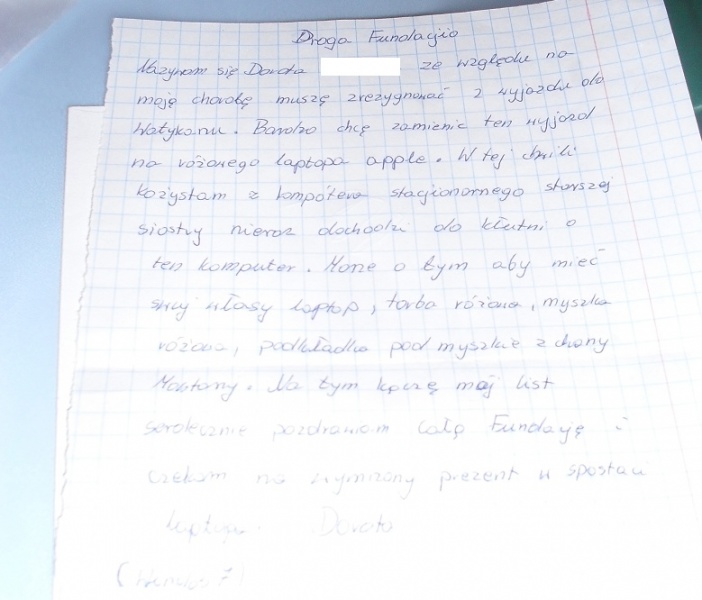 Droga Fundacjo
Nazywam się Dorota ze względu na
moją chorobę muszę zrezygnować z wyjazdu do
Watykanu. Bardzo chcę zamienic ten wyjazd
na różowego laptopa apple. W tej chwili
kożystam z kompótera stacjonarnego starszej
siostry nieraz dochodzi do kłutni o
ten komputer. Marze o tym aby mieć
swój własy laptop, torba różowa, myszka
różowa, podkładka pod myszkie z hany
Montany. Na tym kączę mój list
serdecznie pozdrawiam całą Fundację i
czekam na wymarzony prezent w spostaci
laptopa. Dorota